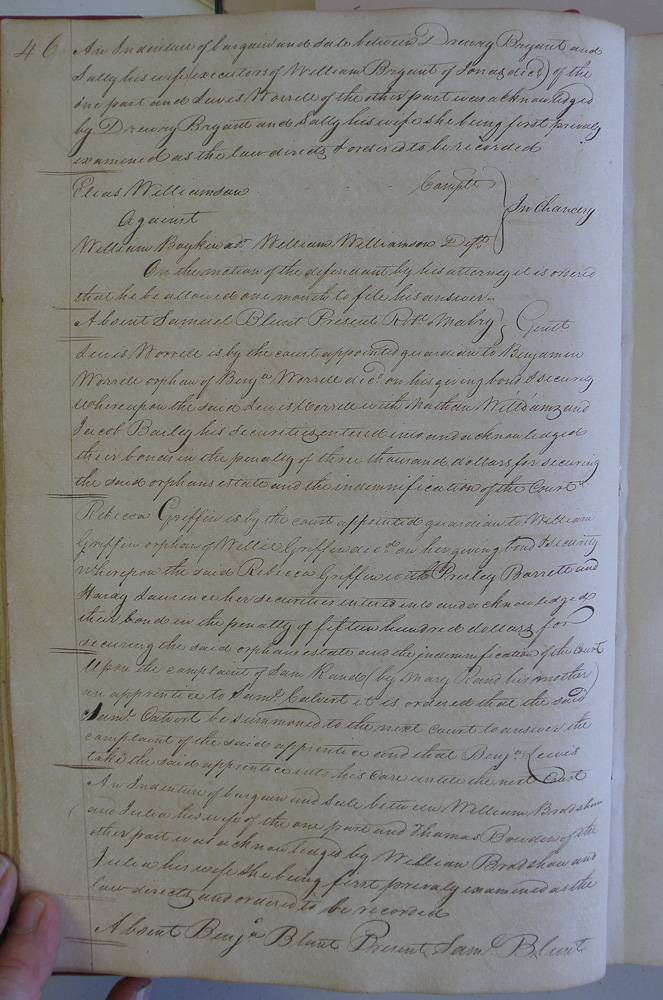 46
An Indenture of bargain and sale between Drewry Bryant and
Sally his wife (executors of William Bryant of Jonas decd) of the
one part and Lewis Worrell of the other part was acknowledged
by Drewry Bryant and Sally his wife she being first privaly
examined as the law directs & ordered to be recorded
Elias Williamson Complt
Against
In Chancery
William Boykin William Williamson Deft
On the motion of the defendant by his attorney it is ordered
that he be allowed one month to file his answer
Absent Samuel Blunt Present Robt Mabry Gentt
Lewis Worrell is by the court appointed guardian to Benjamin
Worrell orphan of Benja Worrell decd on his giving bond & security
Whereupon the said Lewis Worrell with Nathan Williams and
Jacob Bailey his securities entered into and acknowledged
their bond in the penalty of three thousand dollars for securing
the said orphans estate and the indemnification of the Court
Rebecca Griffin is by the court appointed guardian to William
Griffin orphan of Willie Griffin decd on her giving bond & security
Whereupon the said Rebecca Griffin with Presley Barrett and
Hardy Laurence her securities entered into and acknowledged
their bond in the penalty of fifteen hundred dollars for
securing the said orphans estate and the indemnification of the Court
Upon the complaint of Sam Rand (by Mary Rand his mother)
an apprentice to Saml Calvert it is ordered that the said
Saml Calvert be summoned to the next Court to answer the
complaint of the said apprentice and that Benja Lewis
take the said apprentice into his care untill the next Court
An Indenture of bargain and sale between William Bradshaw
and Julia his wife of the one part and Thomas Bowden of the
other part was acknowledged by William Bradshaw and
Julia his wife she being first privaly examined as the
law directs and ordered to be recorded
Absent Benja Blunt Present Saml Blunt